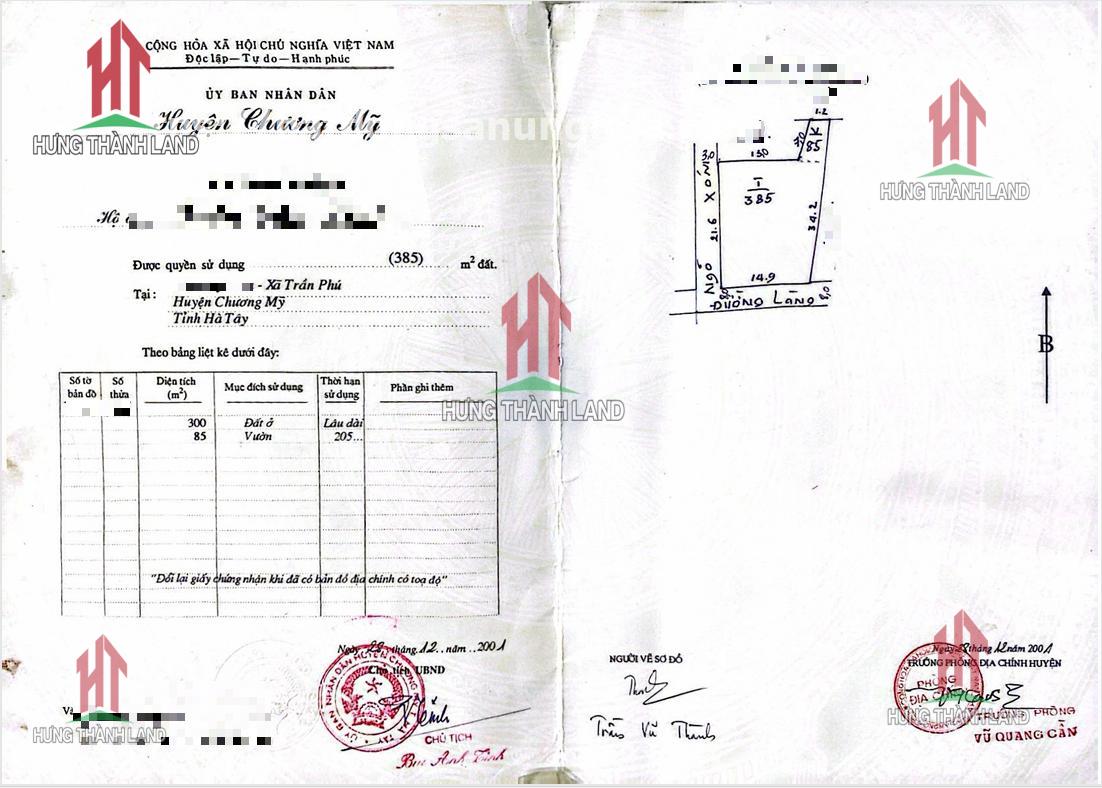 CỘNG HÒA XÃ HỘI CHỦ NGHĨA VIỆT NAM
Độc lập - Tự do - Hạnh phúc
ỦY BAN NHÂN DÂN
Huyện Chương Mỹ
HT
HƯNG THÀNH LAND
Hộ
Được quyền sử dụng (385) m² đất.
Tại : - Xã Trần Phú
Huyện Chương Mỹ
Tỉnh Hà Tây
Theo bảng liệt kê dưới đây:
Số tờ bản đồ Số thửa Diện tích (m²) Mục đích sử dụng Thời hạn sử dụng Phần ghi thêm
300 Đất ở Lâu dài
85 Vườn 205...
"Đổi lại giấy chứng nhận khi đã có bản đồ địa chính có toạ độ"
Ngày 28 tháng 12 năm 2001
Chủ tịch UBND
CHỦ TỊCH
Bùi Anh Tính
HT
HƯNG THÀNH LAND
HT
HƯNG THÀNH LAND
1.2
7.0
K
85
3,0
13.0
T
385
NGÕ XÓM
21.6
34.2
14.9
8,0
ĐƯỜNG LÀNG
8,0
HT
HƯNG THÀNH LAND
B
NGƯỜI VẼ SƠ ĐỒ
Trần Vũ Thành
Ngày 28 tháng 12 năm 2001
TRƯỞNG PHÒNG ĐỊA CHÍNH HUYỆN
PHÒNG
ĐỊA CHÍNH
TRƯỞNG PHÒNG
VŨ QUANG CẦN
HT
HƯNG THÀNH LAND